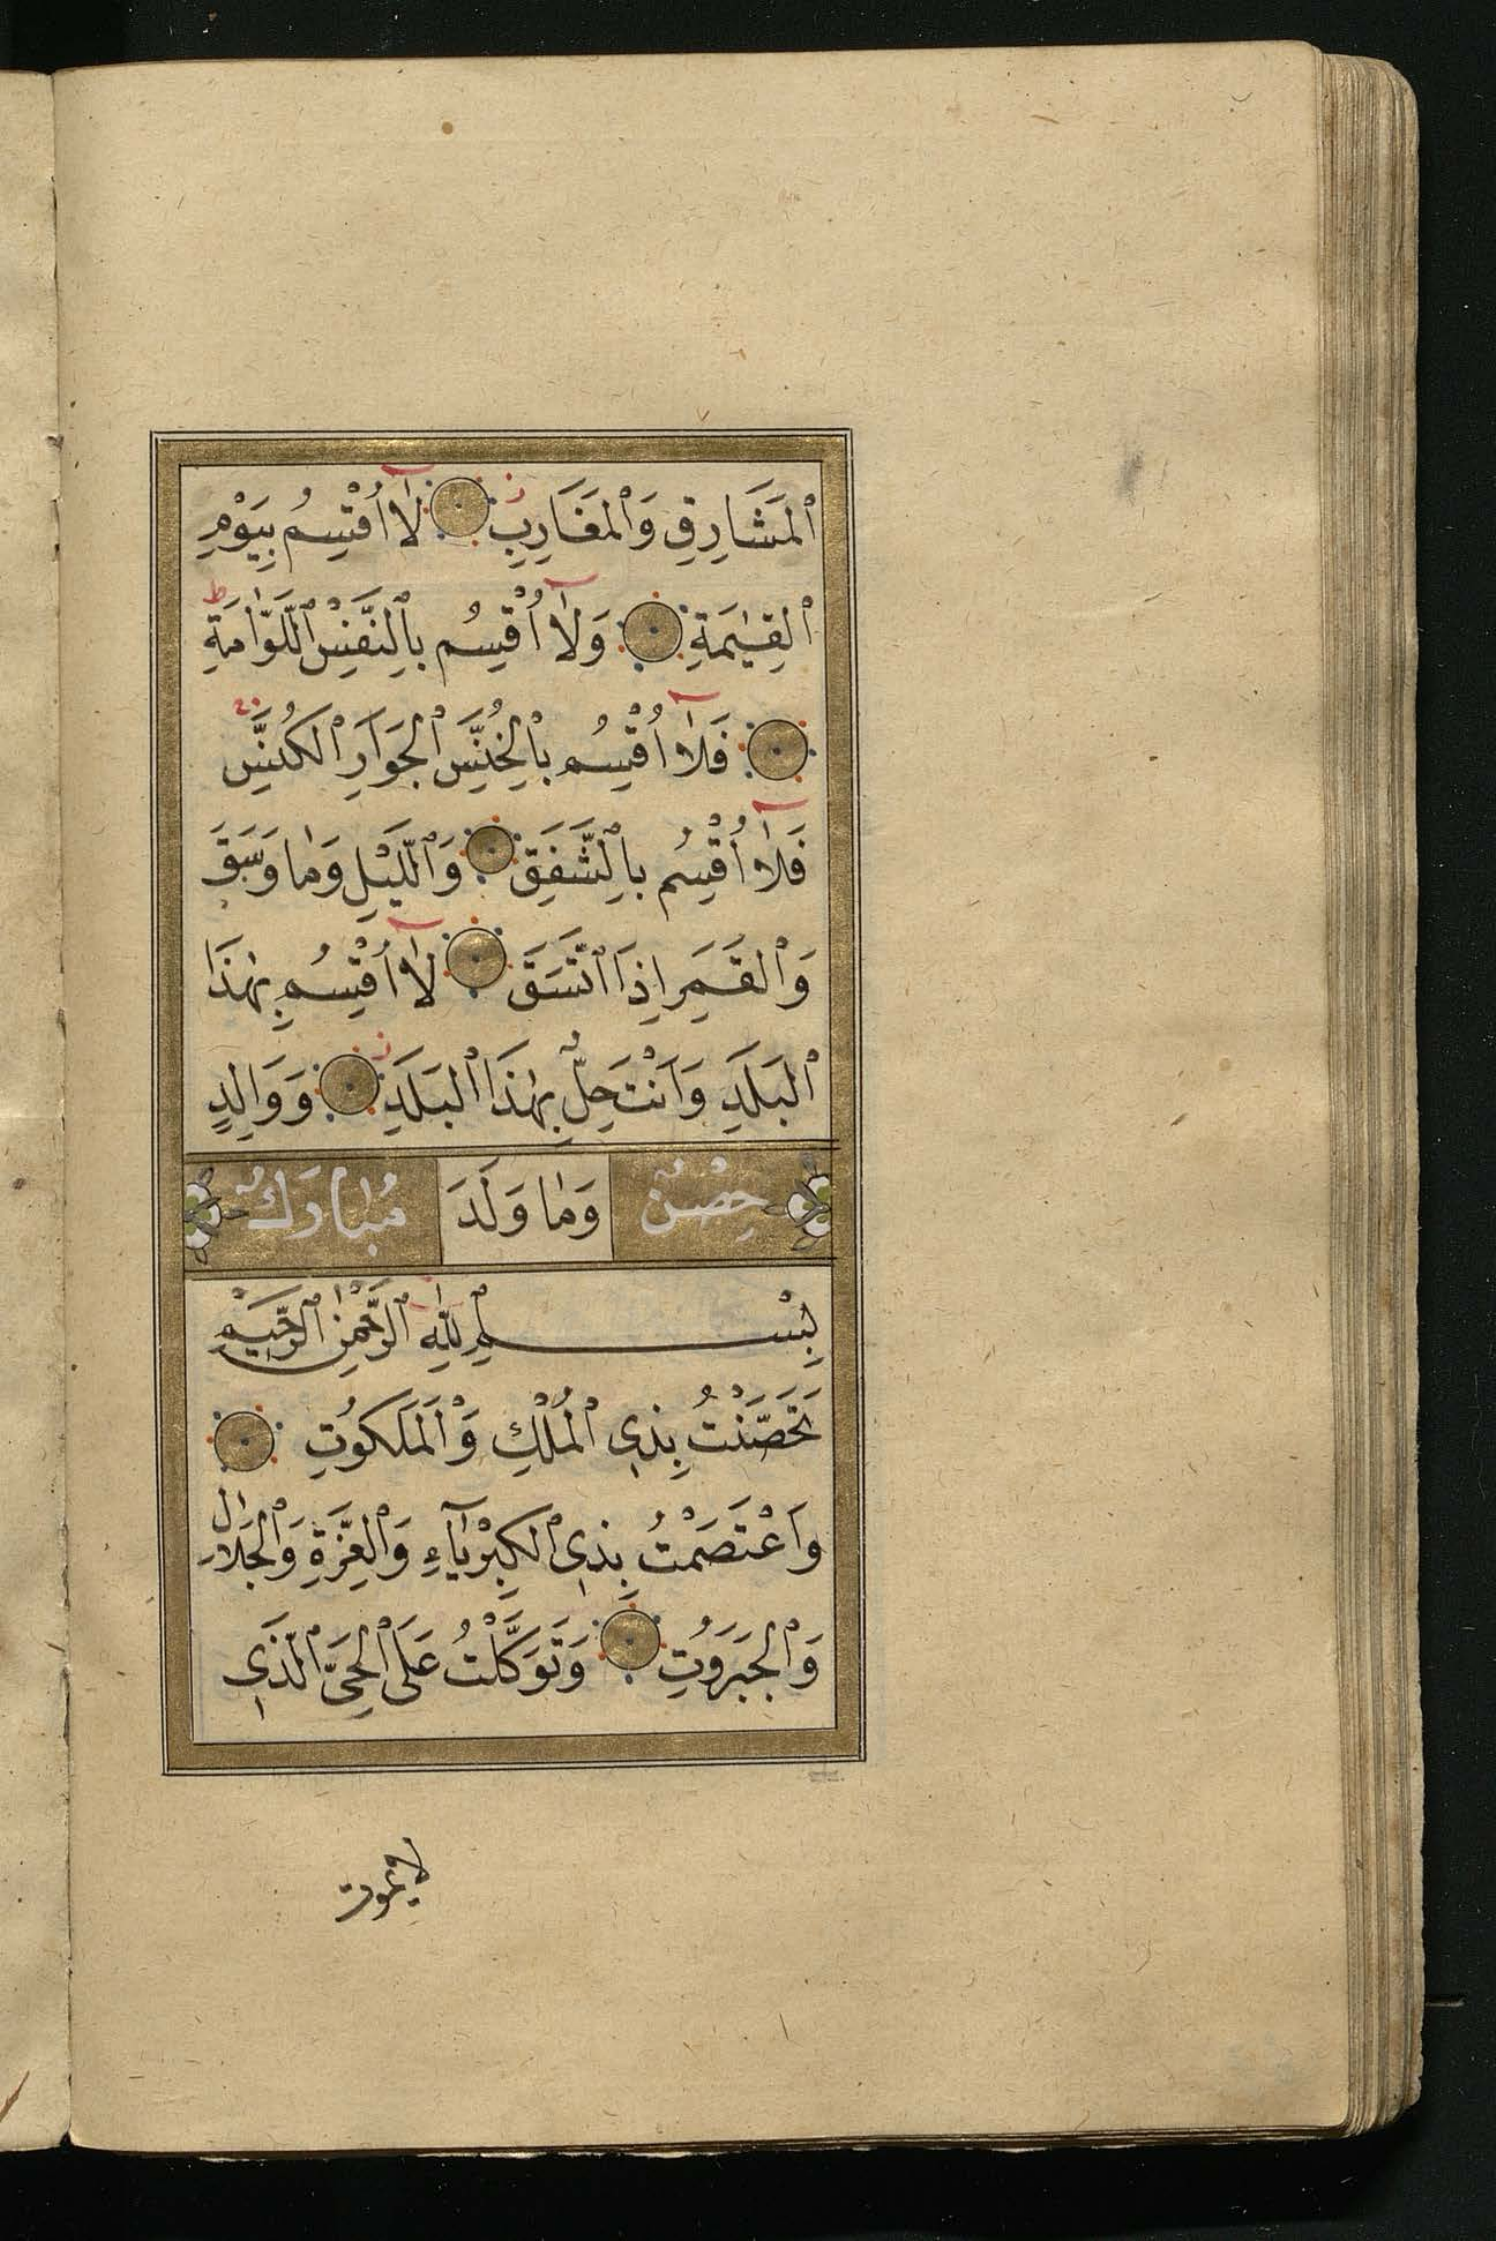 ٱلْمَشَارِقِ وَٱلْمَغَارِبِ لَآ اُقْسِمُ بِيَوْمِ
ٱلْقِيٰمَةِ وَلَآ اُقْسِمُ بِالنَّفْسِ ٱللَّوَّامَةِ
فَلَآ اُقْسِمُ بِالْخُنَّسِ ٱلْجَوَارِ ٱلْكُنَّسِ
فَلَآ اُقْسِمُ بِالشَّفَقِ وَٱللَّيْلِ وَمَا وَسَقَ
وَٱلْقَمَرِ اِذَا ٱتَّسَقَ لَآ اُقْسِمُ بِهٰذَا
ٱلْبَلَدِ وَاَنْتَ حِلٌّ بِهٰذَا ٱلْبَلَدِ وَوَالِدٍ
حِصْنٌ وَمَا وَلَدَ مُبَارَكٌ
بِسْمِ ٱللّٰهِ ٱلرَّحْمٰنِ ٱلرَّحِيمِ
تَحَصَّنْتُ بِذِى ٱلْمُلْكِ وَٱلْمَلَكُوتِ
وَاعْتَصَمْتُ بِذِى ٱلْكِبْرِيَآءِ وَٱلْعِزَّةِ وَٱلْجَلَالِ
وَٱلْجَبَرُوتِ وَتَوَكَّلْتُ عَلَى ٱلْحَىِّ ٱلَّذِى
لا يموت